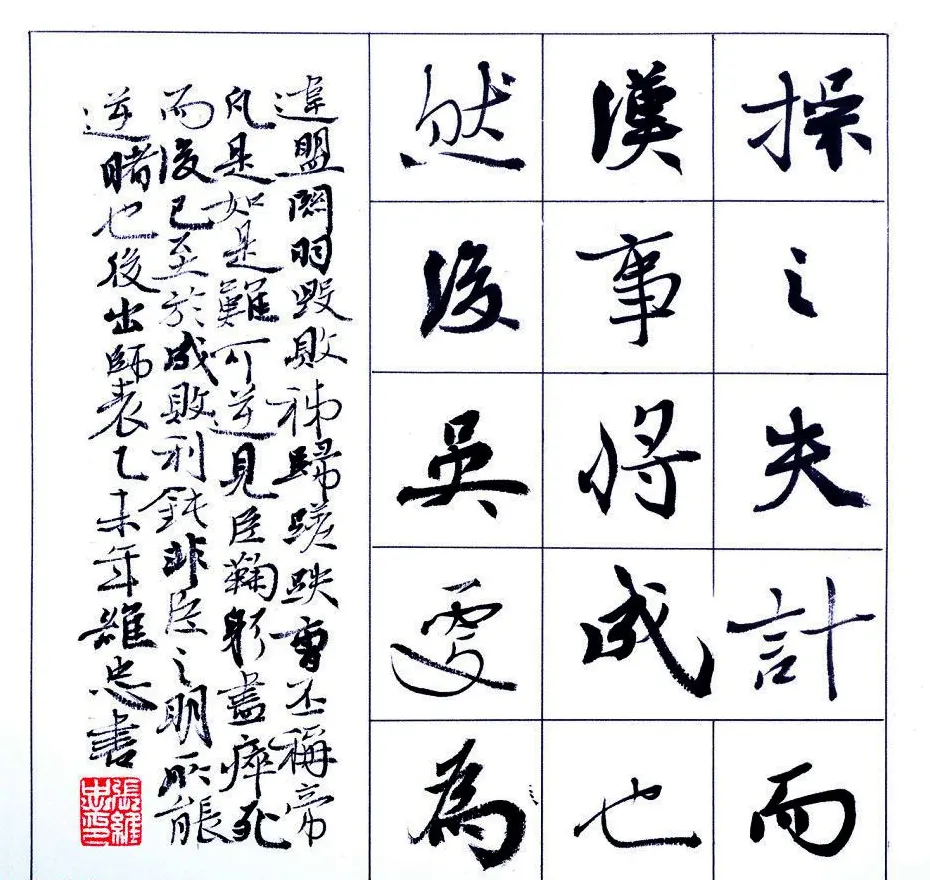 操之失計而
漢事將成也
然後吳更為
違盟關羽毀敗秭歸蹉跌曹丕稱帝
凡是如是難可逆見臣鞠躬盡瘁死
而後已至於成敗利鈍非臣之明所能
逆睹也後出師表乙未年維忠書
張維忠印